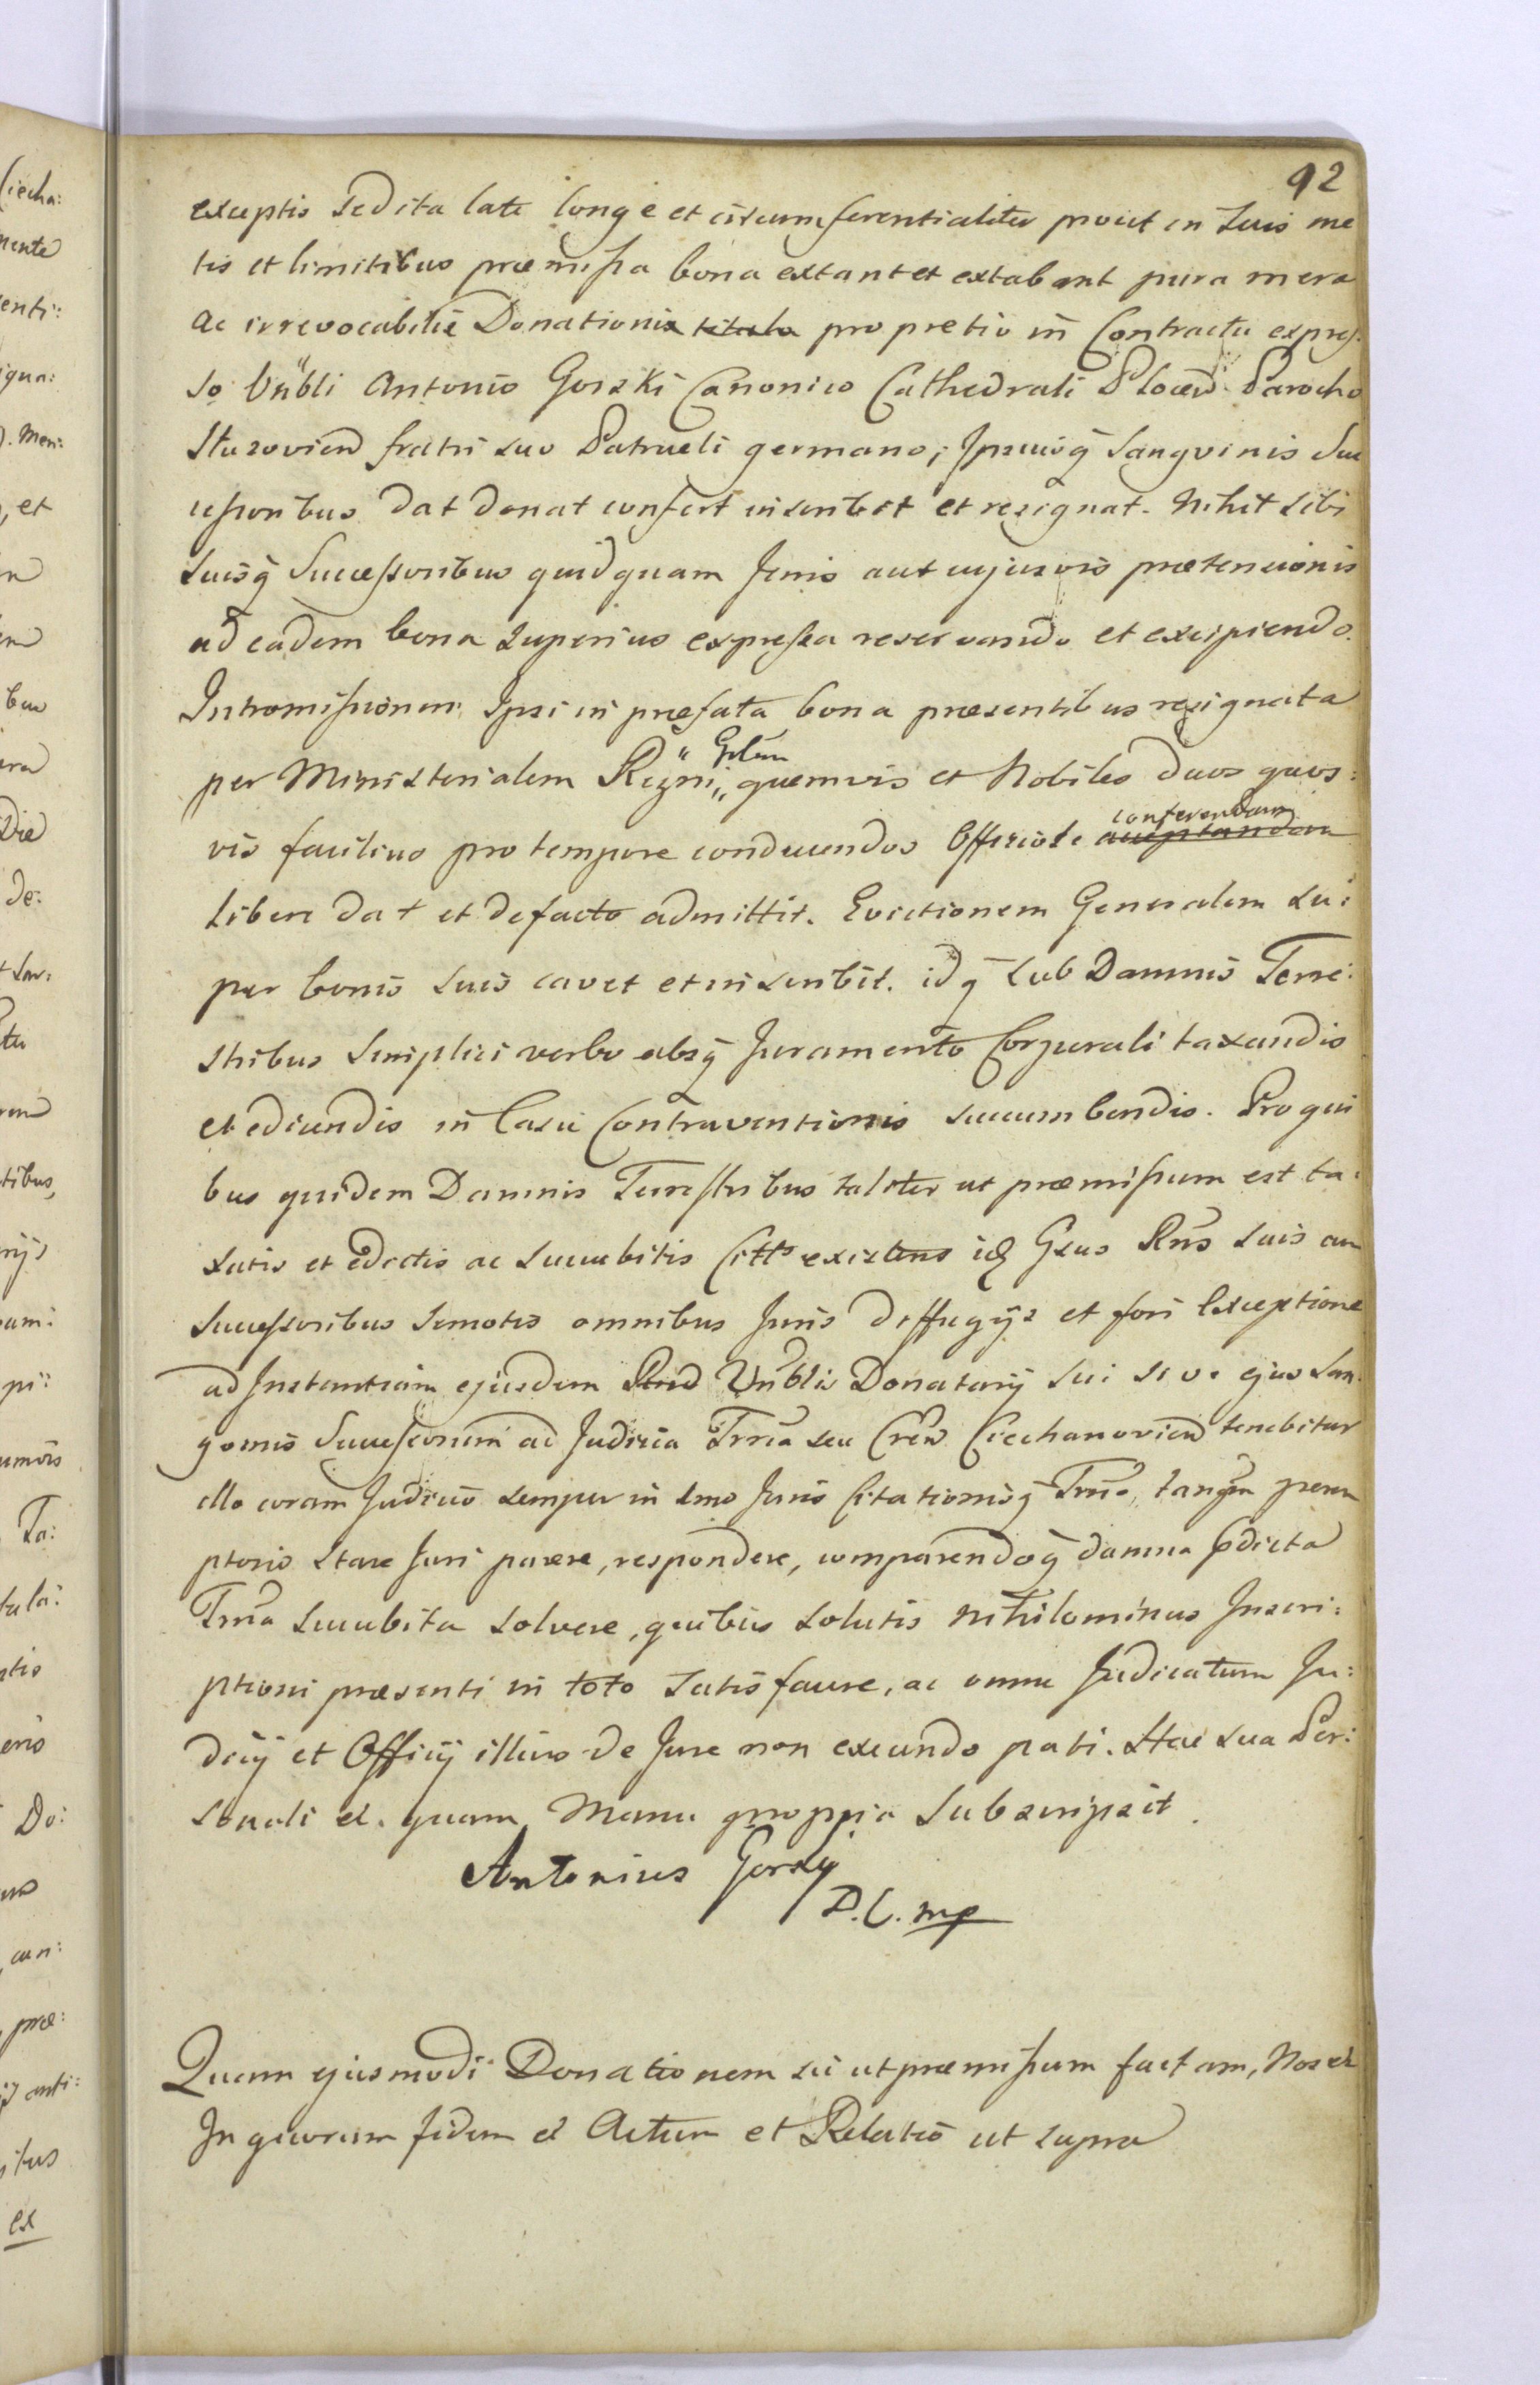 92
exceptis sed ita late longe et circumferentialiter prout in suis me
tis et limitibus præmissa bona extant et extabant pura mera
ac irrevocabilis Donationis titulo pro pretio in Contractu expres:
so Vnbli Antonio Gorski Canonico Cathedrali Plocen Parocho
Sturovien fratri suo Patrueli germano; Ipsiusq̄ Sangvinis Suc
cessoribus dat donat confert inscribit et resignat. Nihil sibi
suisq̄ Successoribus quidquam Juris aut cujusvis prætensionis
ad eadem bona superius expressa reservando et excipiendo.
Intromissionem Ipsi in præfata bona præsentibus resignata
per Ministerialem Regni „ Gnlem „ quemvis et Nobiles duos quos:
vis facilius pro tempore conducendos Officiose acceptandam conferendam
libere dat et defacto admittit. Evictionem Generalem su:
per bonis suis cavet et inscribit. idq̄ sub Damnis Terre:
stribus simplici verbo absq̄ Juramento Corporali taxandis
et ediciendis in Casu Contraventionis succumbendis. Pro qui
bus quidem Damnis Terrestribus taliter ut præmissum est ta:
xatis et edictis ac succubitis Citts existens idē Gsus Rns suis cum
Successoribus semotis omnibus Juris diffugijs et fori Exceptione
ad Instantiam ejusdem Rnd Vnblis Donatarij sui sive ejus San:
gvinis Successorum ad Judicia Trria seu Cren Ciechanovien tenebitur
illo coram Judicio semper in 1mo Juris Citationisq̄ Trrio, tanqm perem
ptorio Stare Juri parere, respondere, comparendoq̄ damna pdicta
Trria succubita solvere, quibus solutis nihilominus Inscri:
ptioni præsenti in toto satisfacere, ac omne Judicatum Ju:
dicij et Officij illius de Jure non exeundo pati. Hac sua Per:
sonali et. quam Manu propria subscripsit.
Antonius Gorsky
P.C. mp
Quam ejusmodi Donationem sic ut præmissum factam, Nos et
In quorum fidem et Actum et Relatio ut supra